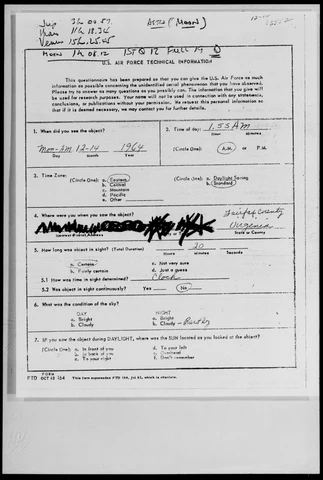 Jup 2h 00.57
Mars 11h 18.34
Venus 15h 25.45
Astro (Moon)
Moon 1h 08.12 1st Q 12 Full 19
U. S. AIR FORCE TECHNICAL INFORMATION
This questionnaire has been prepared so that you can give the U.S. Air Force as much
information as possible concerning the unidentified aerial phenomenon that you have observed.
Please try to answer as many questions as you possibly can. The information that you give will
be used for research purposes. Your name will not be used in connection with any statements,
conclusions, or publications without your permission. We request this personal information so that
if it is deemed necessary, we may contact you for further details.
1. When did you see the object?
Mon-AM 12-14 1964
Day Month Year
2. Time of day: 1:55 AM
Hour Minutes
(Circle One): A.M. or P.M.
3. Time Zone:
(Circle One): a. Eastern
b. Central
c. Mountain
d. Pacific
e. Other
(Circle One): a. Daylight Saving
b. Standard
4. Where were you when you saw the object?
Fairfax County
Virginia
Nearest Postal Address State or County
5. How long was object in sight? (Total Duration) 20
Hours Minutes Seconds
a. Certain
b. Fairly certain
c. Not very sure
d. Just a guess
5.1 How was time in sight determined? Clock
5.2 Was object in sight continuously? Yes No
6. What was the condition of the sky?
DAY
a. Bright
b. Cloudy
NIGHT
a. Bright
b. Cloudy - Partly
7. IF you saw the object during DAYLIGHT, where was the SUN located as you looked at the object?
(Circle One): a. In front of you
b. In back of you
c. To your right
d. To your left
e. Overhead
f. Don't remember
FORM
FTD OCT 62 164 This form supersedes FTD 164, Jul 61, which is obsolete.